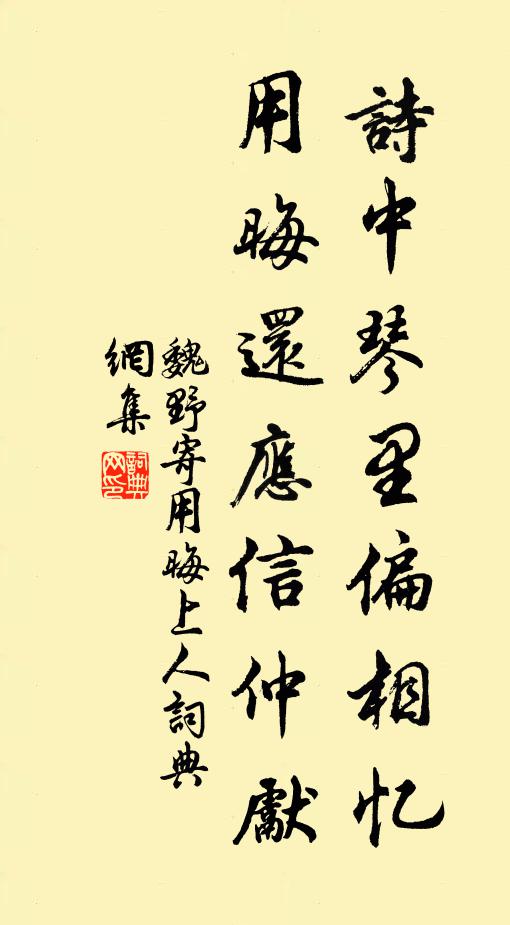 詩中琴里偏相忆
用晦還應信仲獻
魏野寄用晦上人詞典
網集
詞典网印